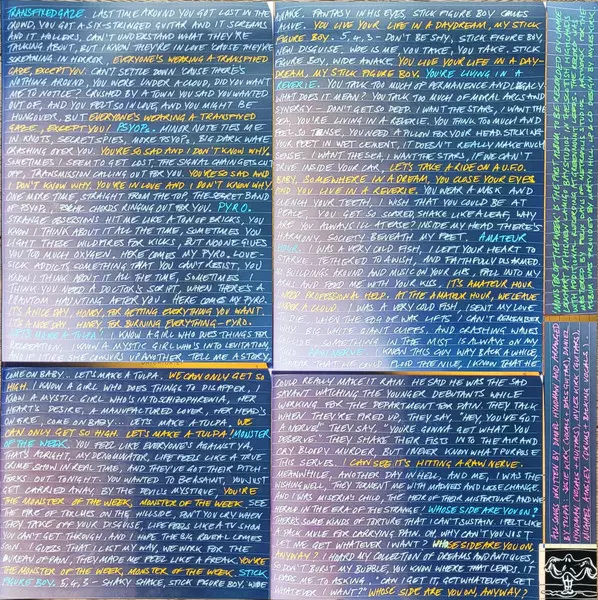 TRANSFIXED GAZE. LAST TIME AROUND YOU GOT LOST IN THE
SOUND, YOU GOT A SIX-STRINGED GUITAR AND IT SCREAMS
AND IT HOLLERS, CAN'T UNDERSTAND WHAT THEY'RE
TALKING ABOUT, BUT I KNOW THEY'RE IN LOVE 'CAUSE THEY'RE
SCREAMING IN HORROR, EVERYONE'S WEARING A TRANSFIXED
GAZE, EXCEPT YOU. CAN'T SETTLE DOWN 'CAUSE THERE'S
NOTHING AROUND. YOU WERE UNDER A CLOUD, AND YOU WANT
ME TO NOTICE? CRUSHED BY A TOWN YOU SAID YOU WANTED
OUT OF, AND YOU FELT SO IN LOVE, AND YOU MIGHT BE
HUNGOVER, BUT EVERYONE'S WEARING A TRANSFIXED
GAZE, EXCEPT YOU! PSYOPS. MINOR NOTE TIES ME
IN KNOTS, SECRET SPIES, MORE PSYOPS, BIG DARK WAVE
CRASHING OVER YOU. YOU'RE SO SAD AND I DON'T KNOW WHY.
SOMETIMES I SEEM TO GET LOST, THE SIGNAL CHAIN GETS CUT
OFF, TRANSMISSION CALLING OUT FOR YOU. YOU'RE SO SAD AND
I DON'T KNOW WHY. YOU'RE IN LOVE AND I DON'T KNOW WHY
ONE MORE TIME, STRAIGHT FROM THE TOP, THE SECRET BAND
OF PSYOP, BREAK CHORDS RINGING OUT FOR YOU. PYRO.
STRANGE OBSESSIONS HIT ME LIKE A TON OF BRICKS, YOU
KNOW I THINK ABOUT IT ALL THE TIME, SOMETIMES YOU
LIGHT THESE WILDFIRES FOR KICKS, BUT NO ONE GIVES
YOU TOO MUCH OXYGEN. HERE COMES MY PYRO. LOVE-
SICK ADDICT, SOMETHING THAT YOU CAN'T RESIST, YOU
KNOW I THINK ABOUT IT ALL THE TIME, SOMETIMES I
THINK YOU NEED A DOCTOR'S SCRIPT, WHEN THERE'S A
PHANTOM HAUNTING AFTER YOU. HERE COMES MY PYRO.
IT'S A NICE DAY, HONEY, FOR GETTING EVERYTHING YOU WANT.
IT'S A NICE DAY, HONEY, FOR BURNING EVERYTHING – PYRO.
LET'S MAKE A TULPA! I KNOW A GIRL WHO DOES THINGS FOR
RECREATION, I KNOW A MYSTIC GIRL WHO'S INTO LEVITATION,
AND IT'LL BE SHE CONJURES UP ANOTHER, TELL ME A STORY,
COME ON BABY... LET'S MAKE A TULPA. WE CAN ONLY GET SO
HIGH. I KNOW A GIRL WHO DOES THINGS TO DISAPPEAR, I
KNOW A MYSTIC GIRL WHO'S INTO SCHIZOPHRENIA, HER
HEART'S DESIRE, A MANUFACTURED LOVER, HER HEAD'S
ON FIRE, COME ON BABY... LET'S MAKE A TULPA. WE
CAN ONLY GET SO HIGH. LET'S MAKE A TULPA! MONSTER
OF THE WEEK. YOU FEEL LIKE EVERYONE'S AGAINST YOU,
THAT'S ALRIGHT, MY DENOMINATOR, LIFE FEELS LIKE A TRUE
CRIME SHOW IN REAL TIME, AND THEY'VE GOT THEIR PITCH-
FORKS OUT TONIGHT. YOU WANTED TO BE ASKANT, YOU JUST
GET CARRIED AWAY, BY THE DEVIL'S MYSTIQUE, YOU'RE
THE MONSTER OF THE WEEK, MONSTER OF THE WEEK. SEE
THE FIRE OF TORCHES ON THE RIDGE, BABY CRY WHEN
THEY TAKE OFF YOUR DISGUISE, LIFE FEELS LIKE A TV SHOW
YOU CAN'T GET THROUGH, AND I HOPE THE BIG REVEAL COMES
SOON. I GUESS THAT I LOST MY WAY, WE WORK FOR THE
BUREAU OF PAIN, THEY MADE ME FEEL LIKE A FREAK. YOU'RE
THE MONSTER OF THE WEEK, MONSTER OF THE WEEK. STICK
FIGURE BOY. 5, 4, 3 – SHAKY SHAKE, STICK FIGURE BOY, WIDE
AWAKE. FANTASY IN HIS EYES, STICK FIGURE BOY COMES
ALIVE. YOU LIVE YOUR LIFE IN A DAYDREAM, MY STICK
FIGURE BOY. 5, 4, 3 – DON'T BE SHY, STICK FIGURE BOY,
NEW DISGUISE. WOE IS ME, YOU TAKE, YOU TAKE, STICK
FIGURE BOY, WIDE AWAKE. YOU LIVE YOUR LIFE IN A DAY-
DREAM, MY STICK FIGURE BOY. YOU'RE LIVING IN A
REVERIE. YOU TALK TOO MUCH OF PERMANENCE AND LEGACY
WHAT DOES IT MEAN? YOU TALK TOO MUCH OF MORAL PACTS AND
SYNERGY – DON'T GET SO DEEP. I WANT THE STARS, I WANT THE
SEA, YOU'RE LIVING IN A REVERIE. YOU THINK TOO MUCH AND
FEEL SO TENSE, YOU NEED A PILLOW FOR YOUR HEAD. STICKING
YOUR FEET IN WET CEMENT, IT DOESN'T REALLY MAKE MUCH
SENSE. I WANT THE SEA, I WANT THE STARS, IF WE CAN'T
LIVE INSIDE YOUR CAR, LET'S TAKE A RIDE ON A U.F.O.
BABY, SOMEWHERE IN A DREAM. YOU CLOSE YOUR EYES
AND YOU LIVE IN A REVERIE. YOU WEAR A MASK AND
CLENCH YOUR TEETH, I WISH THAT YOU COULD BE AT
PEACE, YOU GET SO SCARED, SHAKE LIKE A LEAF, WHY
ARE YOU ALWAYS ILL AT EASE? INSIDE MY HEAD THERE'S
HARMONY, SOCIETY BENEATH MY FEET. AMATEUR
HOUR. I WAS A VERY COLD FISH, I LEFT YOUR HEART TO
STARVE, TETHERED TO A WISH, AND FAITHFULLY DISARMED.
BUILDINGS AROUND AND MUSIC ON YOUR LIPS, FALL INTO MY
ARMS AND FEED ME WITH YOUR KISS. IT'S AMATEUR HOUR,
NEED PROFESSIONAL HELP. AT THE AMATEUR HOUR, WE LEAVE
UNDER A CLOUD. I WAS A VERY COLD FISH, I SENT MY LOVE
WHY, BIG WHITE GIANT CLIFFS, AND CRASHING WAVES
INSIDE. SOMETHING IN THE MIST IS ALWAYS ON MY
RAW NERVE. I KNEW THIS GUY WAY BACK A WHILE,
THAT HE COULD FLOOD THE NILE, I KNEW THAT HE
COULD REALLY MAKE IT RAIN. HE SAID HE WAS THE SAD
SAVANT WATCHING THE YOUNGER DEBUTANTS WHILE
WORKING FOR THE DEPARTMENT FOR PAIN. THEY TALK
WHEN THEY'RE FIRED UP, THEY SAY, "HEY YOU'VE GOT
A NERVE!" THEY SAY, "YOU'RE GONNA GET WHAT YOU
DESERVE." THEY SHAKE THEIR FISTS INTO THE AIR AND
CRY BLOODY MURDER, BUT I NEVER KNEW WHAT PURPOSE
THIS SERVES. I CAN SEE IT'S HITTING A RAW NERVE.
MEANWHILE, ANOTHER DAY IN HELL, AND ME, I WAS THE
WISHING WELL. THEY TORMENT ME WITH WISHES AND LOOSE CHANGE,
AND I WAS MISERIA'S CHILD, THE HEIR OF THEIR MISFORTUNE, AND WE
STEROD IN THE ERA OF THE STRANGE! WHOSE SIDE ARE YOU ON?
THERE'S SOME KINDS OF TORTURE THAT I CAN'T SUSTAIN. I FELT LIKE
A PACK MULE FOR CARRYING PAIN. OH, WHY CAN'T YOU JUST
LET ME GET WHATEVER I WANT? WHOSE SIDE ARE YOU ON,
ANYWAY? I HEARD MY COLLECTION OF DREAMS AND ANTIQUES,
SO DON'T BURST MY BUBBLE, YOU KNOW WHERE THAT LEADS. IT
LEADS ME TO ASKING... CAN I GET IT, GET WHATEVER, GET
WHATEVER I WANT? WHOSE SIDE ARE YOU ON, ANYWAY?
MONSTER OF THE WEEK IS THE FIRST ALBUM TO BE RECORDED BY
ALL SONGS WRITTEN BY DANIEL HINDMAN, AND ARRANGED